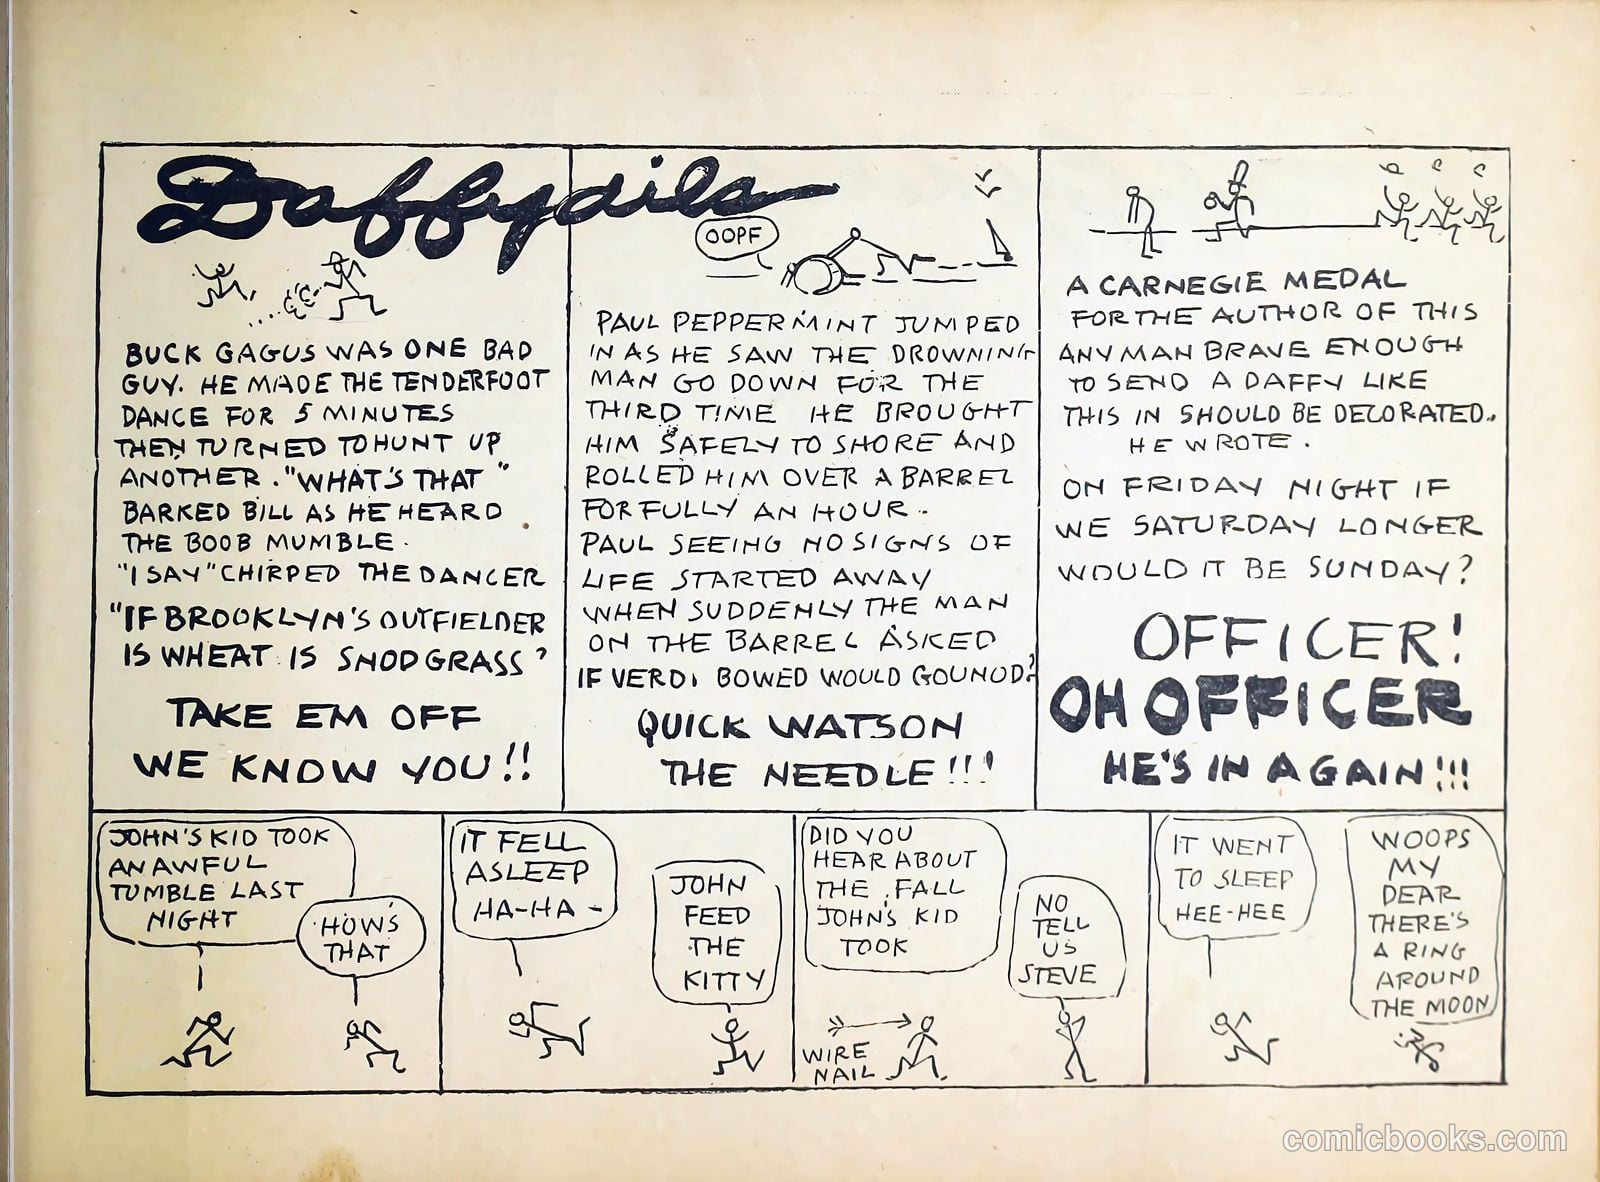 Daffydils
BUCK GAGUS WAS ONE BAD
GUY. HE MADE THE TENDERFOOT
DANCE FOR 5 MINUTES
THEN TURNED TO HUNT UP
ANOTHER. "WHAT'S THAT"
BARKED BILL AS HE HEARD
THE BOOB MUMBLE.
"I SAY" CHIRPED THE DANCER
"IF BROOKLYN'S OUTFIELDER
IS WHEAT IS SNODGRASS?
TAKE EM OFF
WE KNOW YOU!!
OOPF
PAUL PEPPERMINT JUMPED
IN AS HE SAW THE DROWNING
MAN GO DOWN FOR THE
THIRD TIME HE BROUGHT
HIM SAFELY TO SHORE AND
ROLLED HIM OVER A BARREL
FOR FULLY AN HOUR.
PAUL SEEING NO SIGNS OF
LIFE STARTED AWAY
WHEN SUDDENLY THE MAN
ON THE BARREL ASKED
IF VERDI BOWED WOULD GOUNOD?
QUICK WATSON
THE NEEDLE!!!
A CARNEGIE MEDAL
FOR THE AUTHOR OF THIS
ANY MAN BRAVE ENOUGH
TO SEND A DAFFY LIKE
THIS IN SHOULD BE DECORATED.
HE WROTE.
ON FRIDAY NIGHT IF
WE SATURDAY LONGER
WOULD IT BE SUNDAY?
OFFICER!
OH OFFICER
HE'S IN AGAIN!!!
JOHN'S KID TOOK
AN AWFUL
TUMBLE LAST
NIGHT
HOW'S
THAT
IT FELL
ASLEEP
HA-HA-
JOHN
FEED
THE
KITTY
DID YOU
HEAR ABOUT
THE FALL
JOHN'S KID
TOOK
NO
TELL
US
STEVE
WIRE
NAIL
IT WENT
TO SLEEP
HEE-HEE
WOOPS
MY
DEAR
THERE'S
A RING
AROUND
THE MOON
comicbooks.com